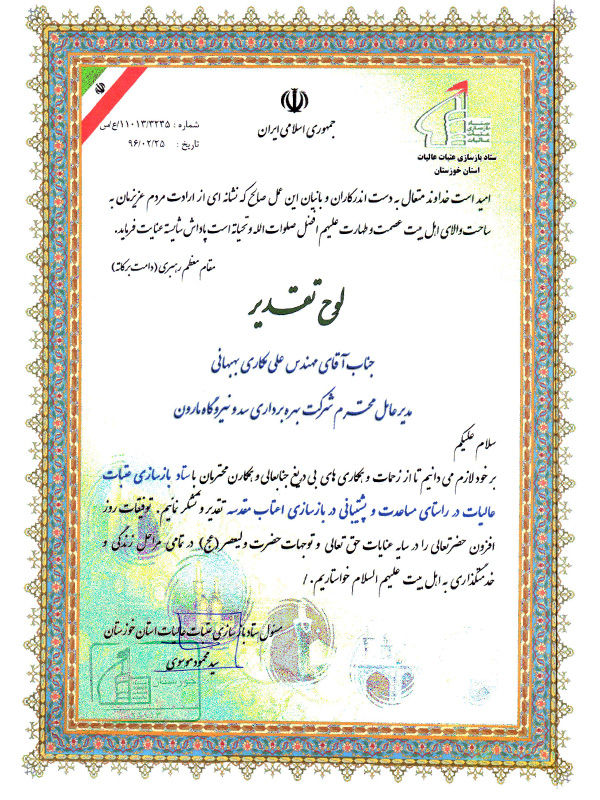 شماره : ۱۱۰۱۳/۳۲۳۵/ع/س
تاریخ : ۹۶/۰۲/۲۵
جمهوری اسلامی ایران
ستاد
بازسازی
عتبات
عالیات
ستاد بازسازی عتبات عالیات
استان خوزستان
امید است خداوند متعال به دست اندرکاران و بانیان این عمل صالح که نشانه ای از ارادت مردم عزیزمان به
ساحت والای اهل بیت عصمت و طهارت علیهم افضل صلوات الله و تحیاته است پاداش شایسته عنایت فرماید.
مقام معظم رهبری (دامت برکاته)
لوح تقدیر
جناب آقای مهندس علی کاری بهبهانی
مدیر عامل محترم شرکت بهره برداری سد و نیروگاه مارون
سلام علیکم
بر خود لازم می دانیم تا از زحمات و همکاری های بی دریغ جنابعالی و همکاران محترمتان با ستاد بازسازی عتبات
عالیات در راستای مساعدت و پشتیبانی در بازسازی اعتاب مقدسه تقدیر و تشکر نمائیم. توفیقات روز
افزون حضرتعالی را در سایه عنایات حق تعالی و توجهات حضرت ولیعصر (عج) در تمامی مراحل زندگی و
خدمتگذاری به اهل بیت علیهم السلام خواستاریم./
مسئول ستاد بازسازی عتبات عالیات استان خوزستان
سید محمود موسوی
خوزستان